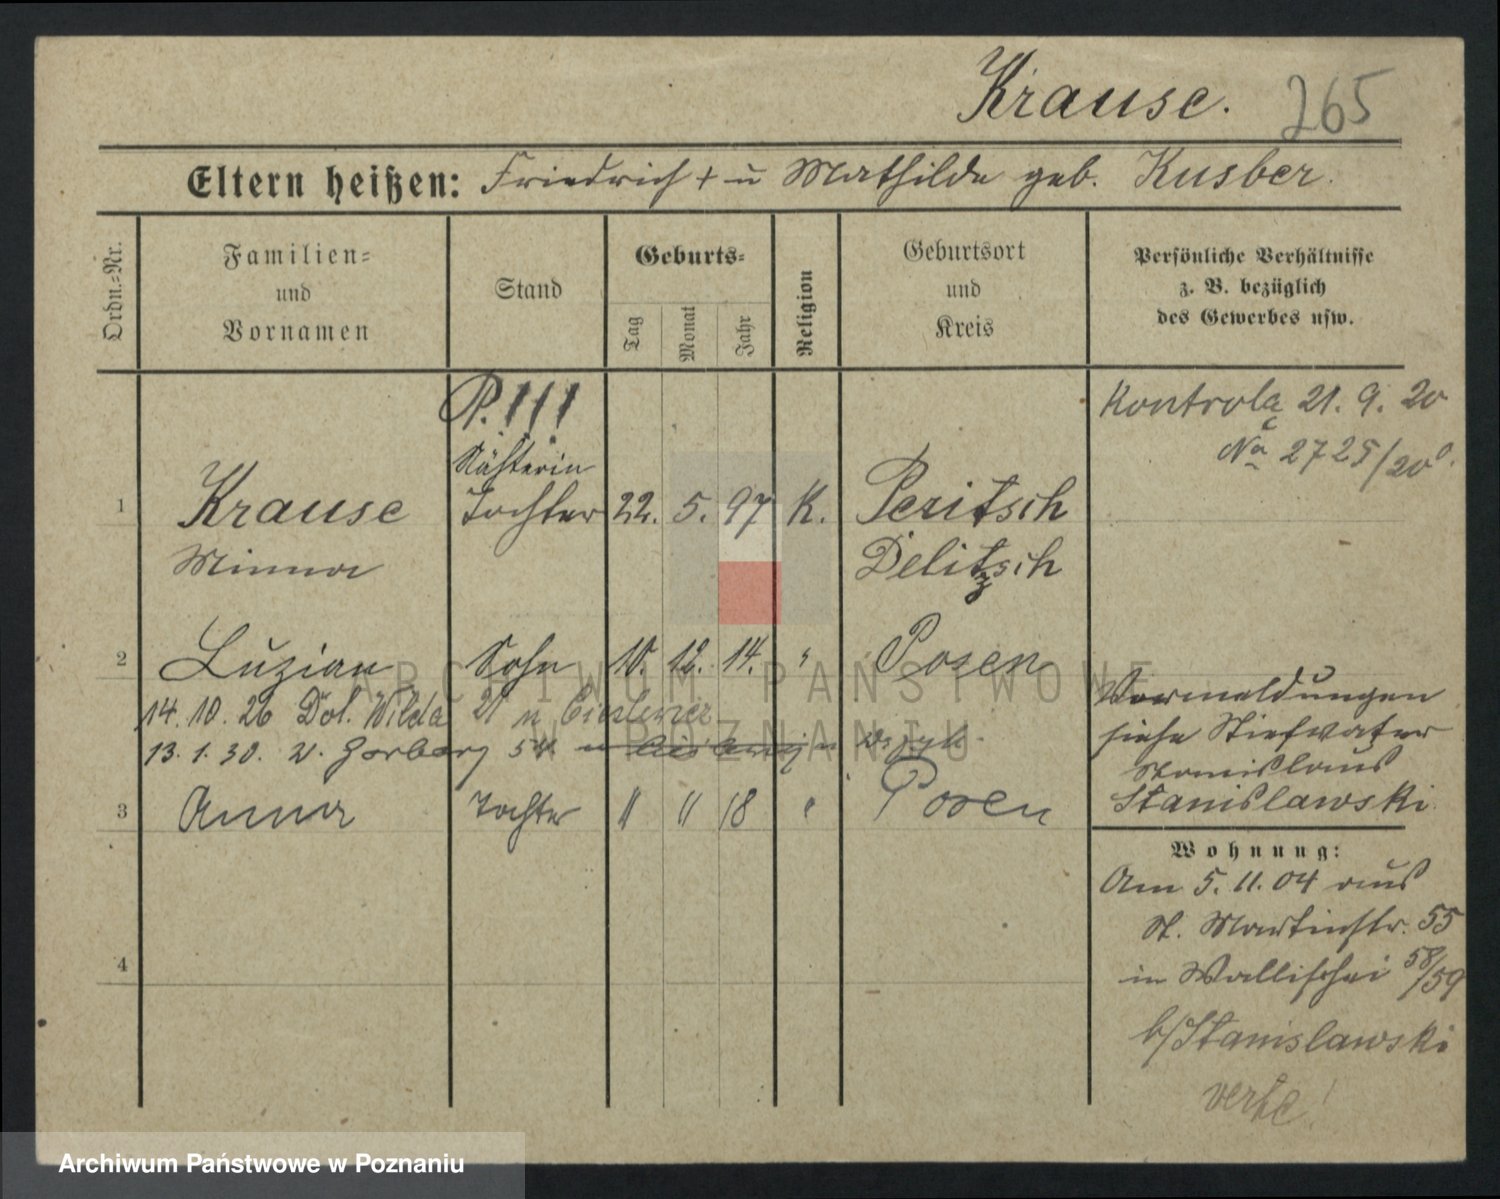 Krause. 265
Eltern heißen: Friedrich + u Mathilde geb. Kusber.
Ordn.-Nr.
Familien-
und
Vornamen
Stand
Geburts-
Tag
Monat
Jahr
Religion
Geburtsort
und
Kreis
Persönliche Verhältnisse
z. B. bezüglich
des Gewerbes usw.
P. !!!
Kontrola 21. 9. 20
No 2725/20
Nähterin
1 Krause Tochter 22. 5. 97 K. Peritzsch
Minna Delitzsch
2 Luzian Sohn 10. 12. 14. " Posen
14. 10. 26 Dol. Wilda 21 u
13. 1. 30. w. Garbary 54
3 Anna Tochter " " 18 " Posen
4
Vormeldungen
siehe Stiefvater
Stanislaus
Stanislawski
Wohnung:
Am 5. 11. 04 aus
St. Martinstr. 55
in Wallischei 58/59
b/Stanislawski
verh!
ARCHIWUM PAŃSTWOWE
W POZNANIU
Archiwum Państwowe w Poznaniu